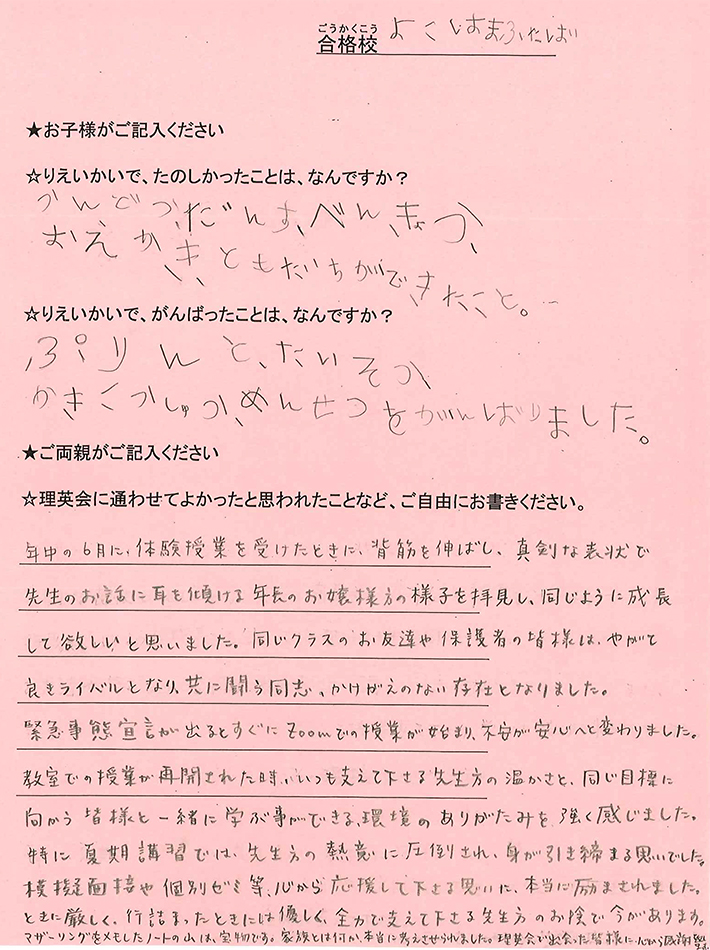 ごうかくこう
合格校 よこはまふたば
★お子様がご記入ください
☆りえいかいで、たのしかったことは、なんですか？
うんどう、だんす、べんきょう、
おえかき、ともだちができたこと。
☆りえいかいで、がんばったことは、なんですか？
ぷりんと、たいそう
かきこうしゅう、めんせつをがんばりました。
★ご両親がご記入ください
☆理英会に通わせてよかったと思われたことなど、ご自由にお書きください。
年中の6月に、体験授業を受けたときに、背筋を伸ばし、真剣な表状で
先生のお話に耳を傾ける年長のお嬢様方の様子を拝見し、同じように成長
して欲しいと思いました。同じクラスのお友達や保護者の皆様は、やがて
良きライバルとなり、共に闘う同志、かけがえのない存在となりました。
緊急事態宣言が出るとすぐにZoomでの授業が始まり、不安が安心へと変わりました。
教室での授業が再開された時、いつも支えて下さる先生方の温かさと、同じ目標に
向かう皆様と一緒に学ぶ事ができる、環境のありがたみを強く感じました。
特に夏期講習では、先生方の熱意に圧倒され、身が引き締まる思いでした。
模擬面接や個別ゼミ等、心から応援して下さる思いに、本当に励まされました。
ときに厳しく、行詰まったときには優しく、全力で支えて下さる先生方のお陰で今があります。
マザーリングをメモしたノートの山は、宝物です。家族とは何か、本当に考えさせられました。理英会で出会った皆様に、心から感謝